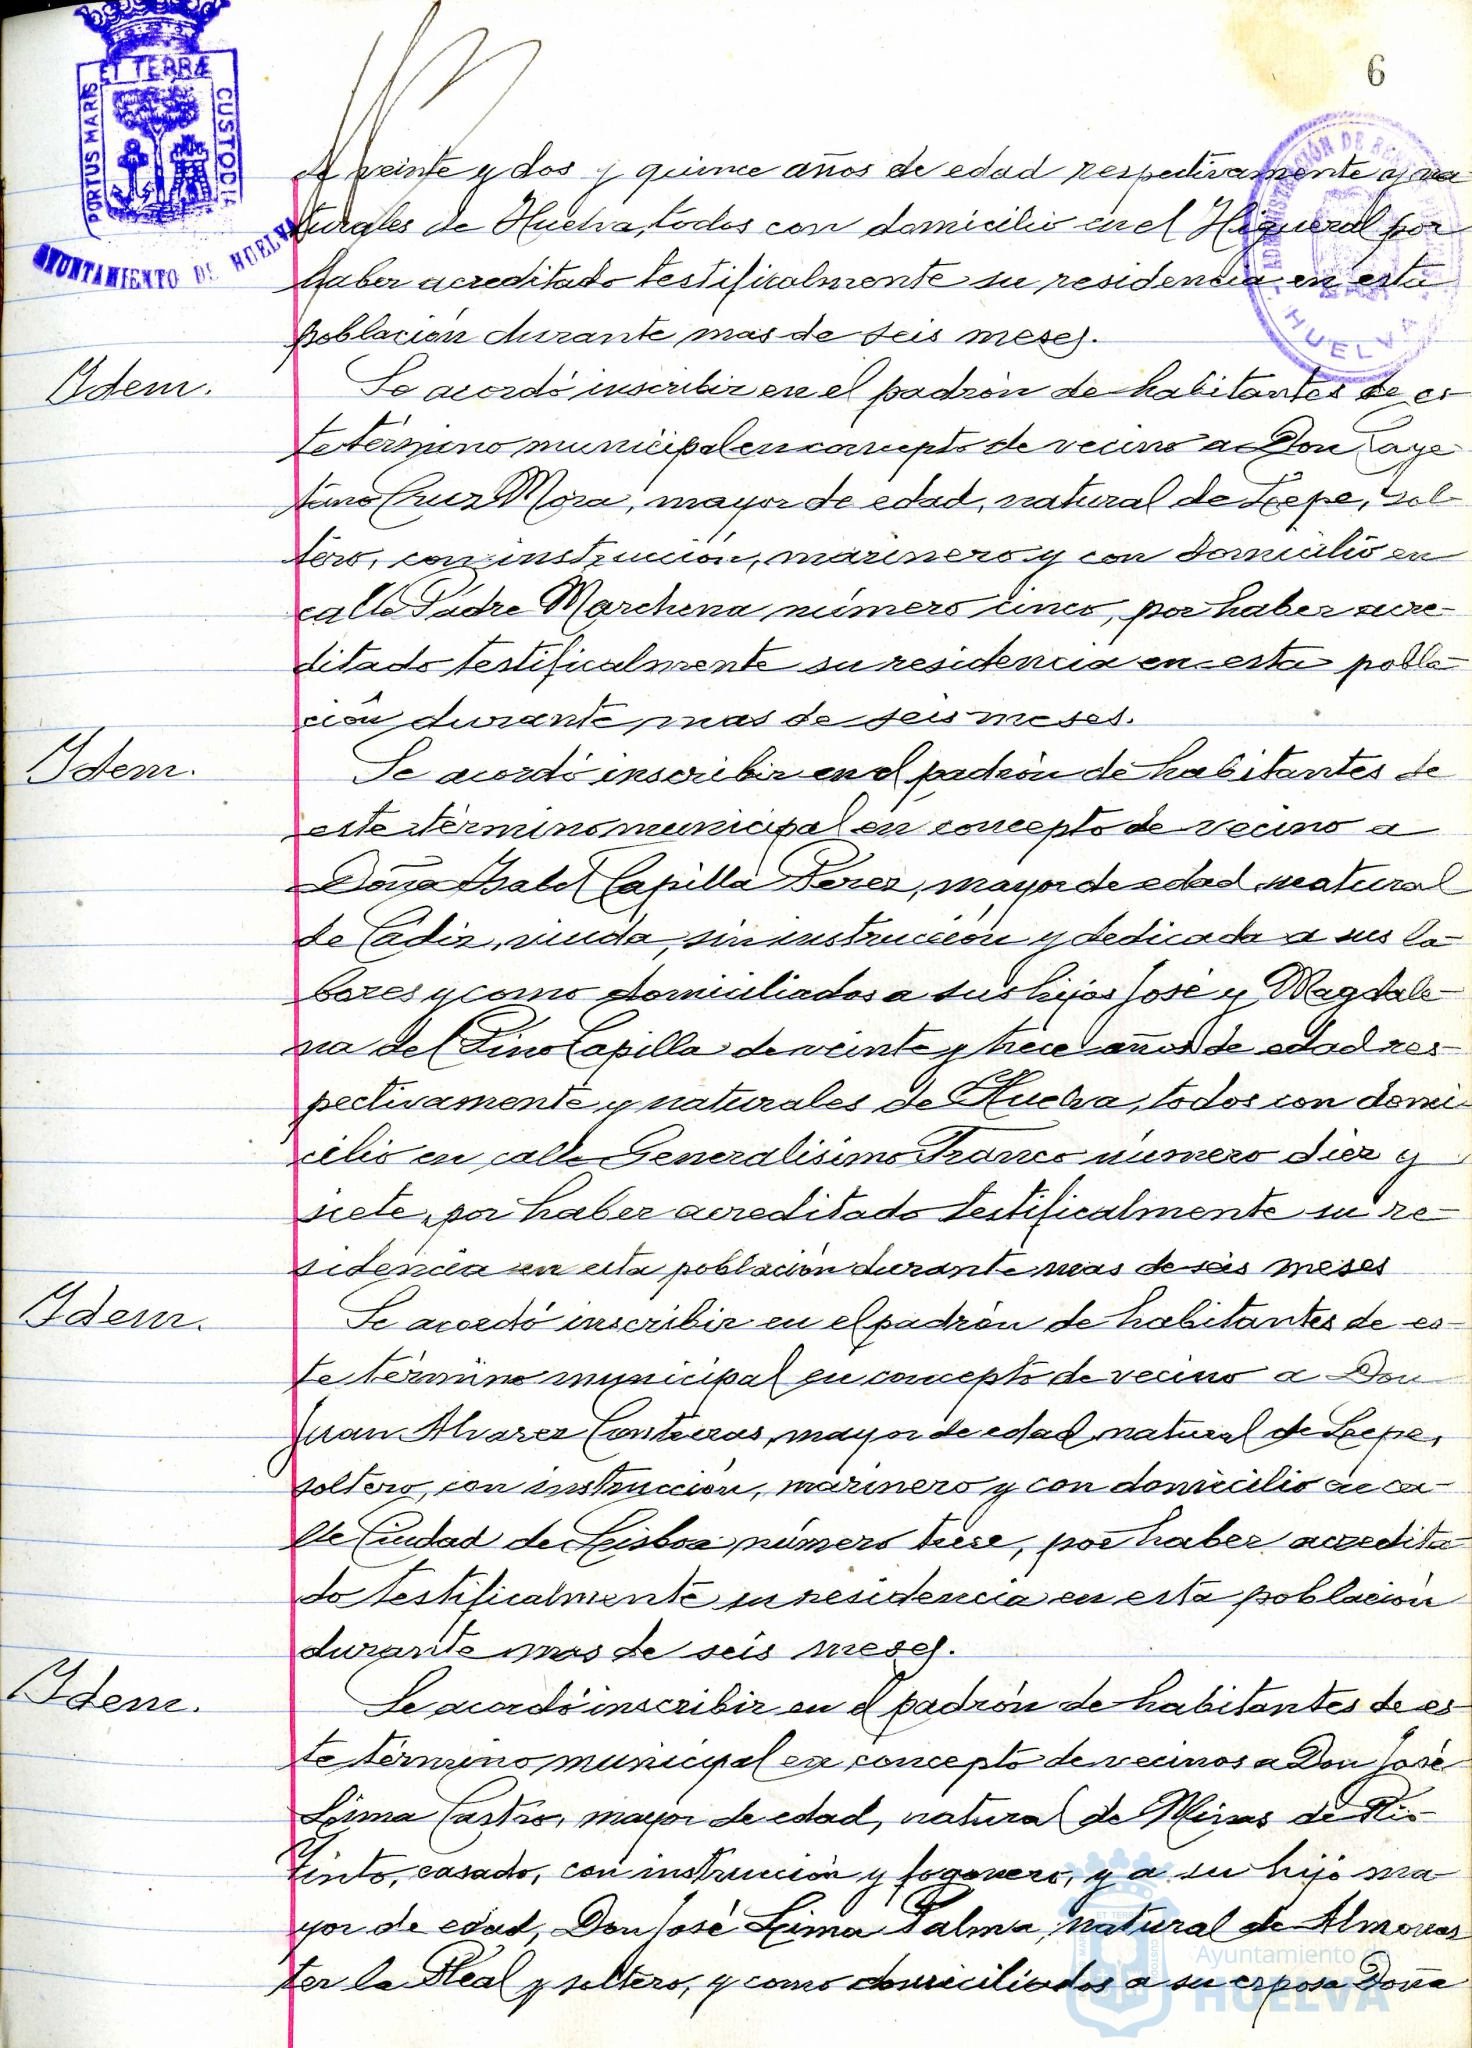 6
ET TERRÆ
PORTUS MARIS
CUSTODIA
AYUNTAMIENTO DE HUELVA
ADMINISTRACIÓN DE
HUELVA
de veinte y dos y quince años de edad respectivamente y na-
turales de Huelva, todos con domicilio en el Higueral por
haber acreditado testificalmente su residencia en esta
población durante mas de seis meses.
Idem.
Se acordó inscribir en el padrón de habitantes de es-
te término municipal en concepto de vecino a Don Caye-
tano Cruz Mora, mayor de edad, natural de Lepe, sol-
tero, con instrucción, marinero y con domicilio en
calle Padre Marchena número cinco, por haber acre-
ditado testificalmente su residencia en esta pobla-
ción durante mas de seis meses.
Idem.
Se acordó inscribir en el padrón de habitantes de
este término municipal en concepto de vecino a
Doña Isabel Capilla Perez, mayor de edad, natural
de Cádiz, viuda, sin instrucción y dedicada a sus la-
bores y como domiciliados a sus hijos José y Magdale-
na del Pino Capilla de veinte y trece años de edad res-
pectivamente y naturales de Huelva, todos con domi-
cilio en calle Generalisimo Franco número diez y
siete, por haber acreditado testificalmente su re-
sidencia en esta población durante mas de seis meses
Idem.
Se acordó inscribir en el padrón de habitantes de es-
te término municipal en concepto de vecino a Don
Juan Alvarez Contreras, mayor de edad, natural de Lepe,
soltero, con instrucción, marinero y con domicilio en ca-
lle Ciudad de Lisboa número trese, por haber acredita-
do testificalmente su residencia en esta población
durante mas de seis meses.
Idem.
Se acordó inscribir en el padrón de habitantes de es-
te término municipal en concepto de vecinos a Don José
Lima Castro, mayor de edad, natural de Minas de Rio-
tinto, casado, con instrucción y fogonero, y a su hijo ma-
yor de edad, Don José Lima Palma, natural de Almonas-
ter la Real y soltero, y como domiciliados a su esposa Doña
Ayuntamiento de
HUELVA